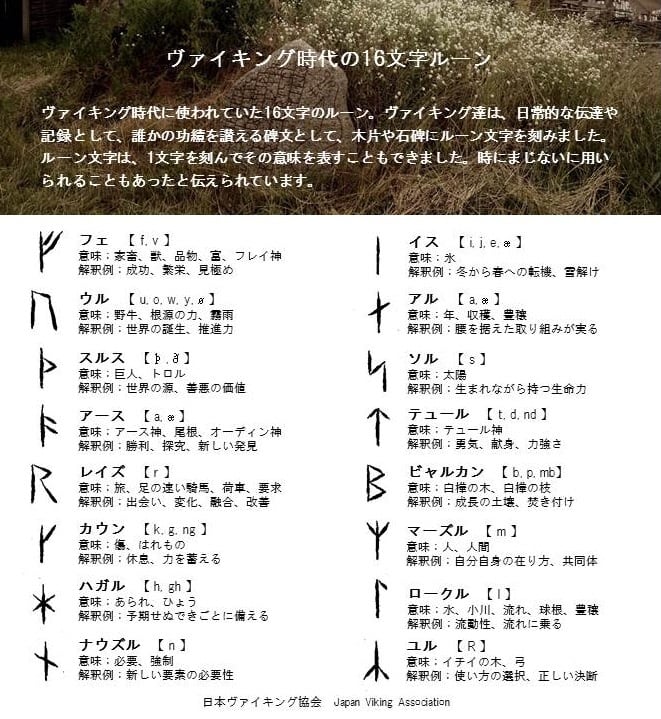 ヴァイキング時代の16文字ルーン
ヴァイキング時代に使われていた16文字のルーン。ヴァイキング達は、日常的な伝達や
記録として、誰かの功績を讃える碑文として、木片や石碑にルーン文字を刻みました。
ルーン文字は、1文字を刻んでその意味を表すこともできました。時にまじないに用い
られることもあったと伝えられています。
ᚠ フェ 【 f, v 】
意味；家畜、獣、品物、富、フレイ神
解釈例：成功、繁栄、見極め
ᚢ ウル 【 u, o, w, y, ø 】
意味：野牛、根源の力、霧雨
解釈例：世界の誕生、推進力
ᚦ スルス 【 þ , ð 】
意味：巨人、トロル
解釈例：世界の源、善悪の価値
ᚨ アース 【 a, æ 】
意味：アース神、尾根、オーディン神
解釈例：勝利、探究、新しい発見
ᚱ レイズ 【 r 】
意味：旅、足の速い騎馬、荷車、要求
解釈例：出会い、変化、融合、改善
ᚴ カウン 【 k, g, ng 】
意味：傷、はれもの
解釈例：休息、力を蓄える
ᚼ ハガル 【 h, gh 】
意味：あられ、ひょう
解釈例：予期せぬできごとに備える
ᚾ ナウズル 【 n 】
意味：必要、強制
解釈例：新しい要素の必要性
ᛁ イス 【 i, j, e, æ 】
意味：氷
解釈例：冬から春への転機、雪解け
ᛅ アル 【 a, æ 】
意味：年、収穫、豊穣
解釈例：腰を据えた取り組みが実る
ᛋ ソル 【 s 】
意味：太陽
解釈例：生まれながら持つ生命力
ᛏ テュール 【 t, d, nd 】
意味：テュール神
解釈例：勇気、献身、力強さ
ᛒ ビャルカン 【 b, p, mb】
意味：白樺の木、白樺の枝
解釈例：成長の土壌、焚き付け
ᛘ マーズル 【 m 】
意味：人、人間
解釈例：自分自身の在り方、共同体
ᛚ ロークル 【 l 】
意味：水、小川、流れ、球根、豊穣
解釈例：流動性、流れに乗る
ᛦ ユル 【 R 】
意味：イチイの木、弓
解釈例：使い方の選択、正しい決断
日本ヴァイキング協会 Japan Viking Association